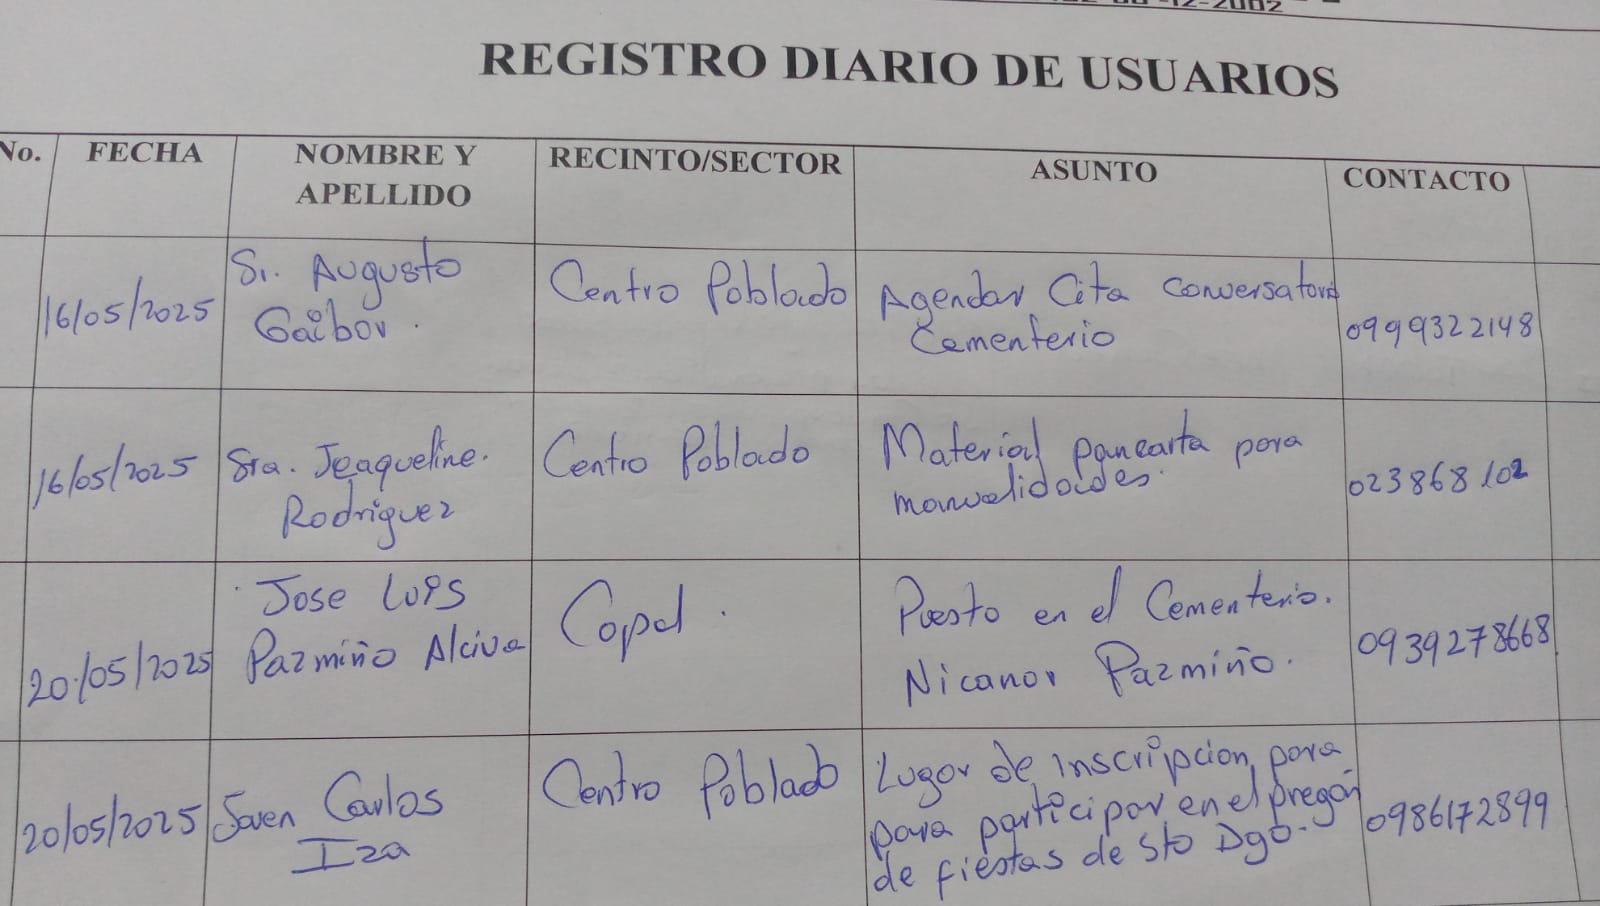 -12-2002
REGISTRO DIARIO DE USUARIOS
No.
FECHA
NOMBRE Y
APELLIDO
RECINTO/SECTOR
ASUNTO
CONTACTO
16/05/2025
Sr. Augusto
Gaibor.
Centro Poblado
Agendar Cita Conversatorio
Cementerio
0999322148
16/05/2025
Sra. Jeaqueline.
Rodriguez
Centro Poblado
Material pancarta para
manualidades.
023868102
20/05/2025
Jose Luis
Pazmiño Alciva
Copal.
Puesto en el Cementerio.
Nicanor Pazmiño.
0939278668
20/05/2025
Joven Carlos
Iza
Centro Poblado
Lugar de inscripcion para
para participar en el pregón
de fiestas de Sto Dgo.
0986172899